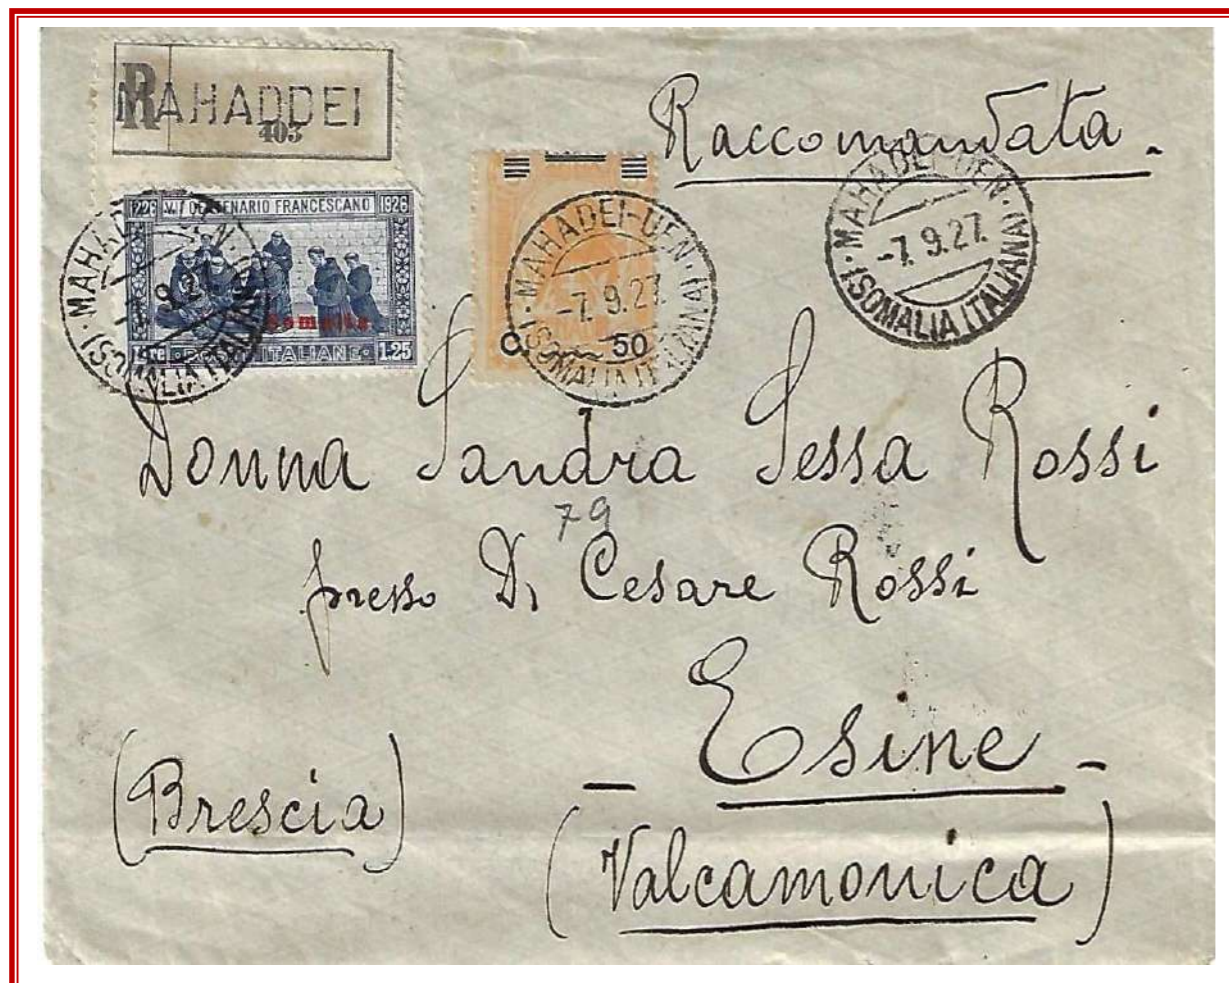 R
MAHADDEI
403
Raccomandata.
1226 VII CENTENARIO FRANCESCANO 1926
Somalia
Lire POSTE ITALIANE 1.25
MAHADEI-UEN
-7.9.27
(SOMALIA ITALIANA)
C. 50
MAHADEI-UEN
-7.9.27.
(SOMALIA ITALIANA)
MAHADEI-UEN
-7.9.27.
(SOMALIA ITALIANA)
Donna Sandra Sessa Rossi
79
presso D. Cesare Rossi
- Esine -
(Brescia)
(Valcamonica)